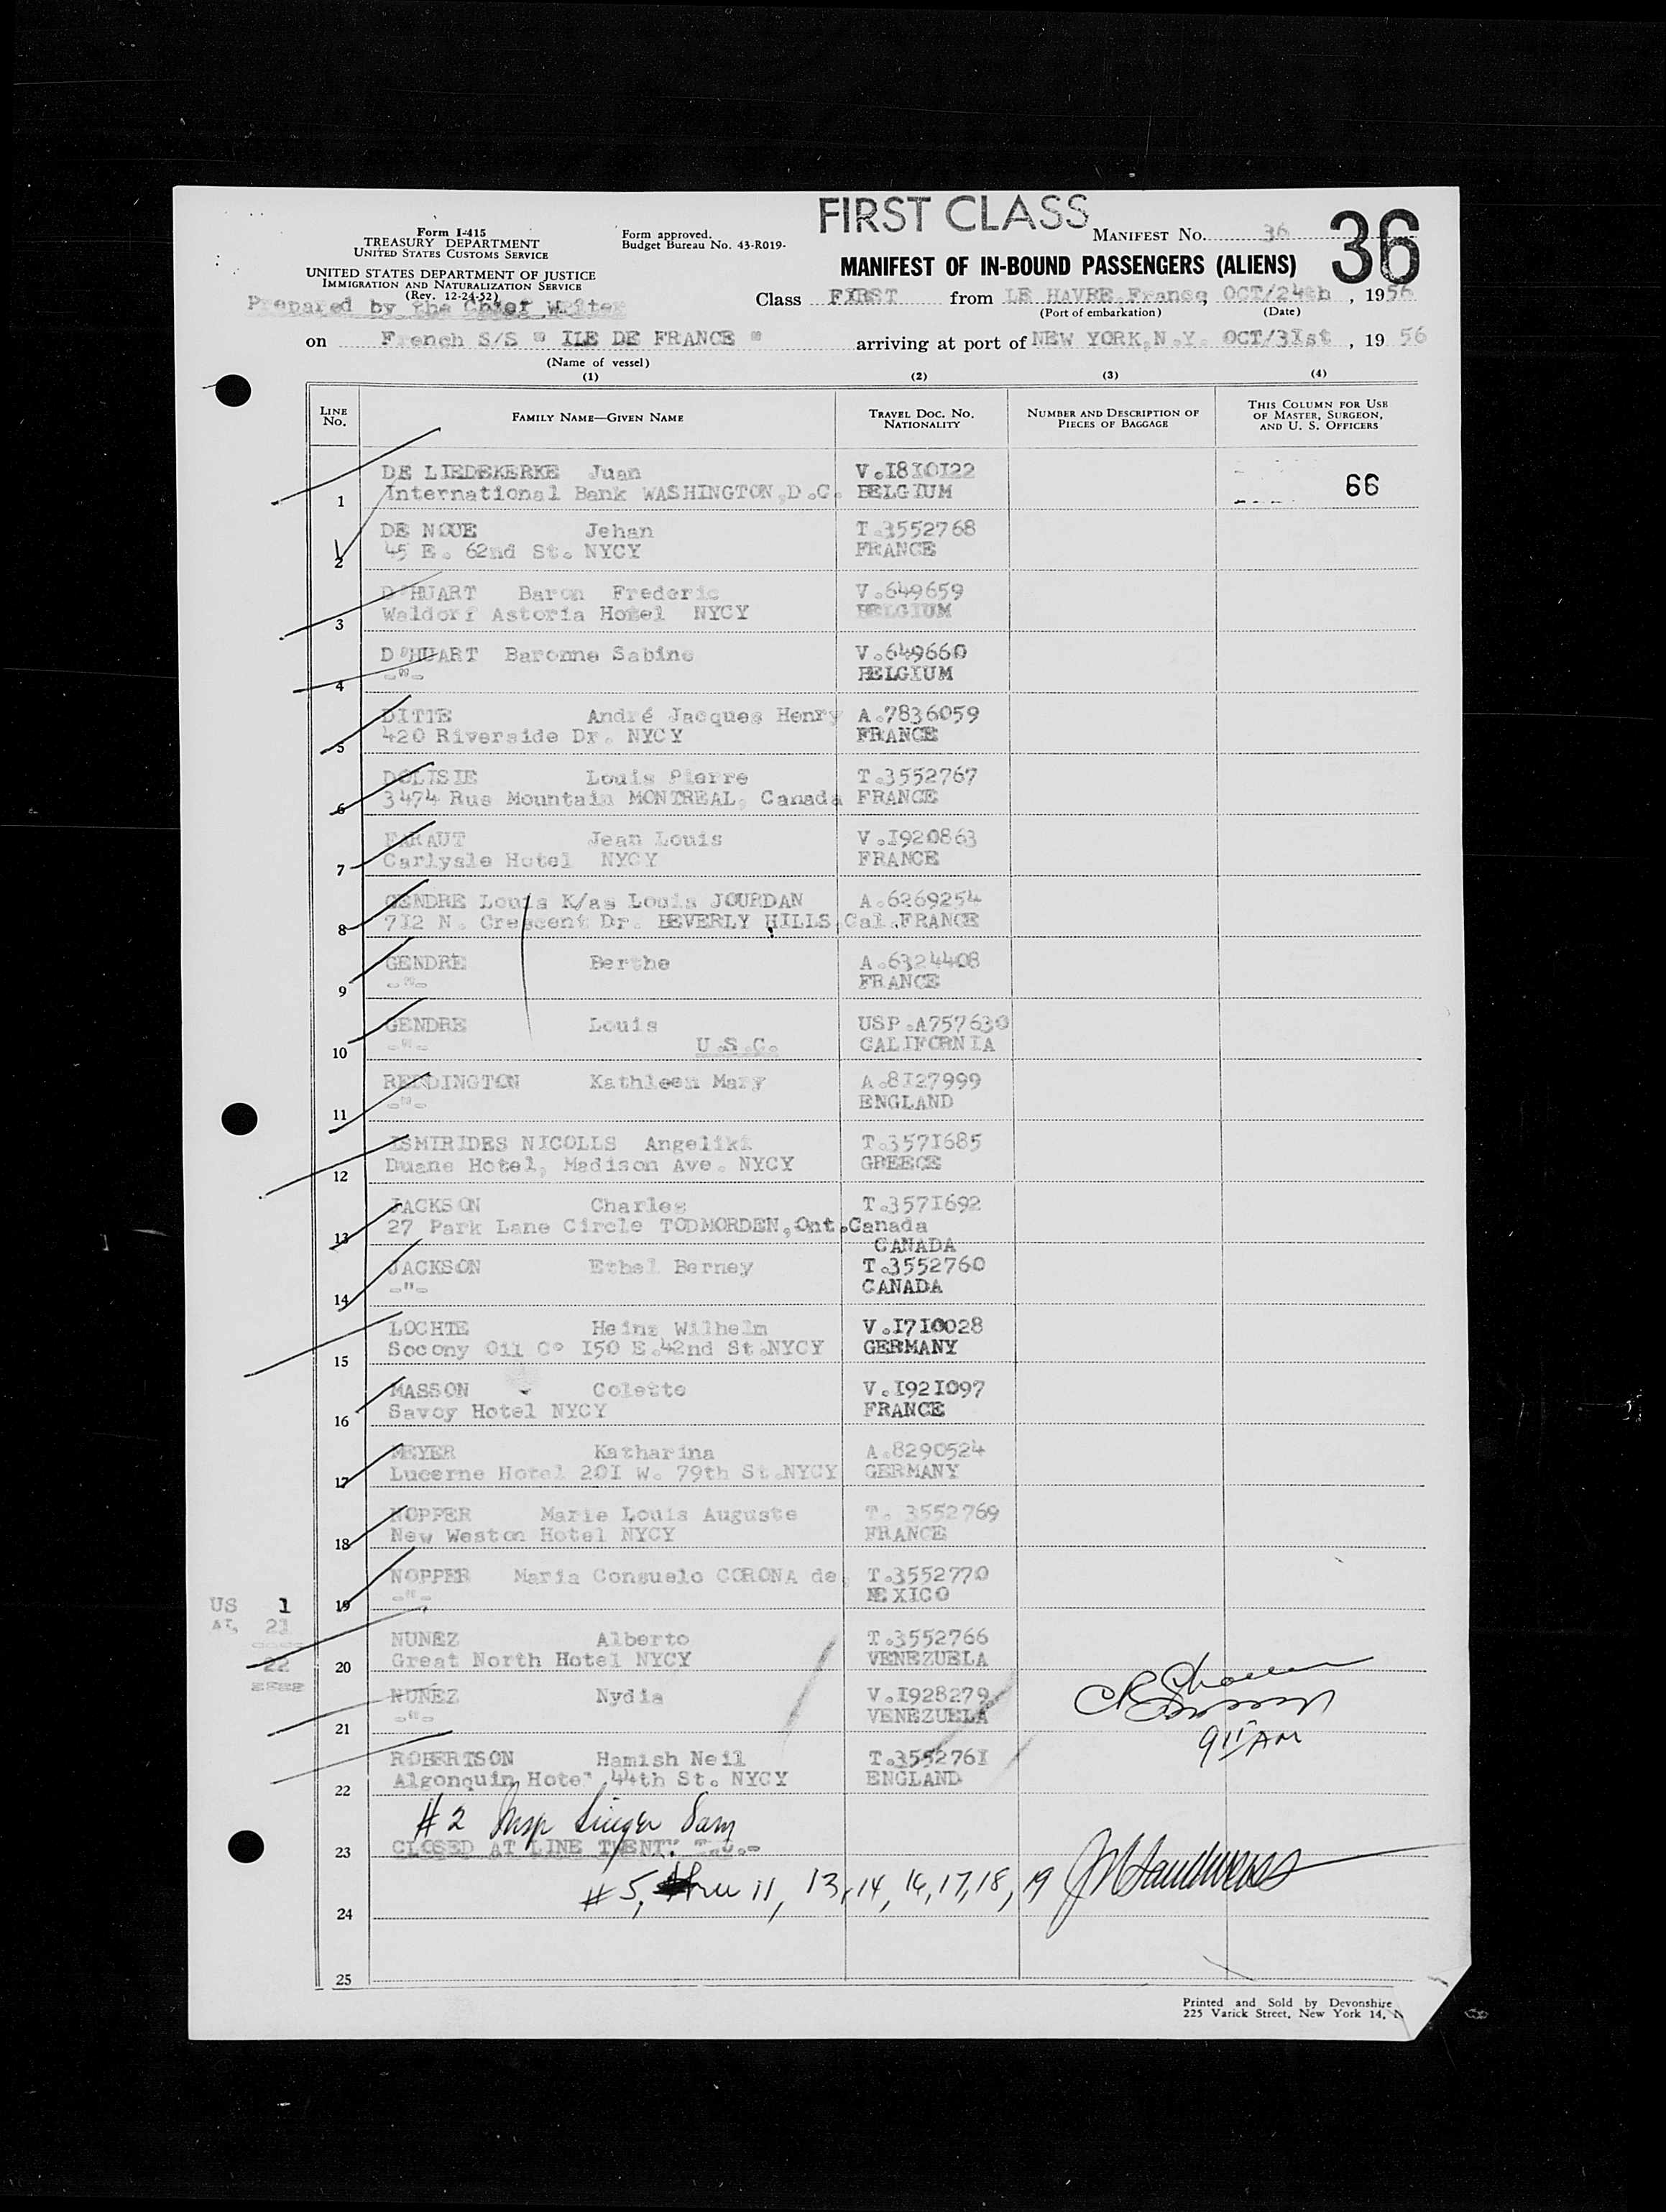 FIRST CLASS
Form I-415
TREASURY DEPARTMENT
UNITED STATES CUSTOMS SERVICE
UNITED STATES DEPARTMENT OF JUSTICE
IMMIGRATION AND NATURALIZATION SERVICE
(Rev. 12-24-52)
Form approved.
Budget Bureau No. 43-R019-
MANIFEST NO. 36
36
MANIFEST OF IN-BOUND PASSENGERS (ALIENS)
Prepared by the Chief Writer
Class FIRST from LE HAVRE France, OCT/24th, 1956
(Port of embarkation) (Date)
on French S/S " ILE DE FRANCE " arriving at port of NEW YORK,N.Y. OCT/3Ist, 19 56
(Name of vessel)
(1) (2) (3) (4)
LINE No. FAMILY NAME—GIVEN NAME TRAVEL DOC. NO. NATIONALITY NUMBER AND DESCRIPTION OF PIECES OF BAGGAGE THIS COLUMN FOR USE OF MASTER, SURGEON, AND U. S. OFFICERS
DE LIEDEKERKE Juan V.I8I0I22
1 International Bank WASHINGTON,D.C. BELGIUM 66
DE NOUE Jehan T.3552768
2 45 E. 62nd St. NYCY FRANCE
D'HUART Baron Frederic V.649659
3 Waldorf Astoria Hotel NYCY BELGIUM
D'HUART Baronne Sabine V.649660
4 -"- BELGIUM
DITTE André Jacques Henry A.7836059
5 420 Riverside Dr. NYCY FRANCE
DOLISIE Louis Pierre T.3552767
6 3474 Rue Mountain MONTREAL, Canada FRANCE
FARAUT Jean Louis V.I920863
7 Carlysle Hotel NYCY FRANCE
GENDRE Louis K/as Louis JOURDAN A.6269254
8 7I2 N. Crescent Dr. BEVERLY HILLS,Cal.FRANCE
GENDRE Berthe A.6324408
9 -"- FRANCE
GENDRE Louis USP.A757630
10 -"- U.S.C. CALIFORNIA
REDDINGTON Kathleen Mary A.8I27999
11 -"- ENGLAND
ISMIRIDES NICOLLS Angeliki T.357I685
12 Duane Hotel, Madison Ave. NYCY GREECE
JACKSON Charles T.357I692
13 27 Park Lane Circle TODMORDEN,Ont.Canada
CANADA
JACKSON Ethel Berney T.3552760
14 -"- CANADA
LOCHTE Heinz Wilhelm V.I7I0028
15 Socony Oil C° I50 E.42nd St.NYCY GERMANY
MASSON Colette V.I92I097
16 Savoy Hotel NYCY FRANCE
MEYER Katharina A.8290524
17 Lucerne Hotel 20I W. 79th St.NYCY GERMANY
NOPPER Marie Louis Auguste T. 3552769
18 New Weston Hotel NYCY FRANCE
NOPPER Maria Consuelo CORONA de, T.3552770
19 -"- MEXICO
US 1
AL 21
22
NUNEZ Alberto T.3552766
20 Great North Hotel NYCY VENEZUELA
NUNEZ Nydia V.I928279
21 -"- VENEZUELA
9 15 AM
ROBERTSON Hamish Neil T.355276I
22 Algonquin Hotel 44th St. NYCY ENGLAND
#2 Insp Singer Sam
23 CLOSED AT LINE TWENTY T.O.-
#5, thru 11, 13, 14, 16, 17, 18, 19
24
25
Printed and Sold by Devonshire
225 Varick Street, New York 14, N